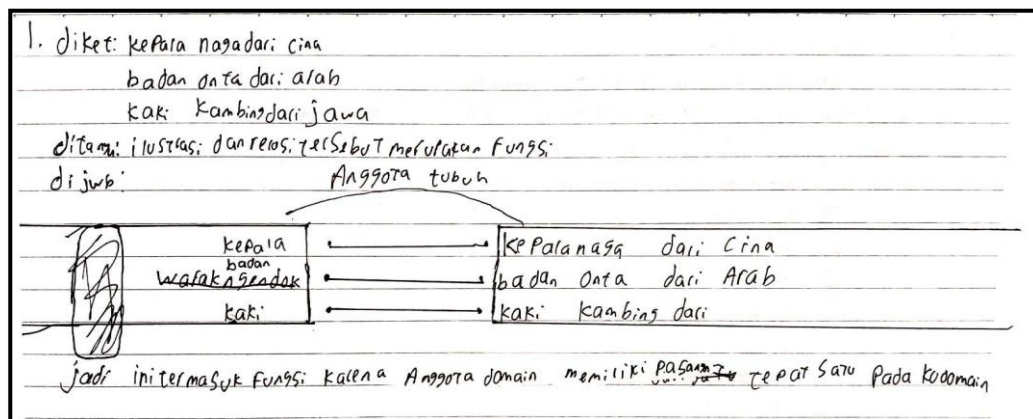 1. diket: kepala naga dari cina
badan onta dari arab
kaki kambing dari jawa
ditanya: ilustrasi dan relasi tersebut merupakan fungsi
dijwb:
Anggota tubuh
kepala kepala naga dari Cina
badan
warakngendok badan Onta dari Arab
kaki kaki kambing dari
jadi ini termasuk fungsi karena Anggota domain memiliki pasangan tepat satu pada kodomain